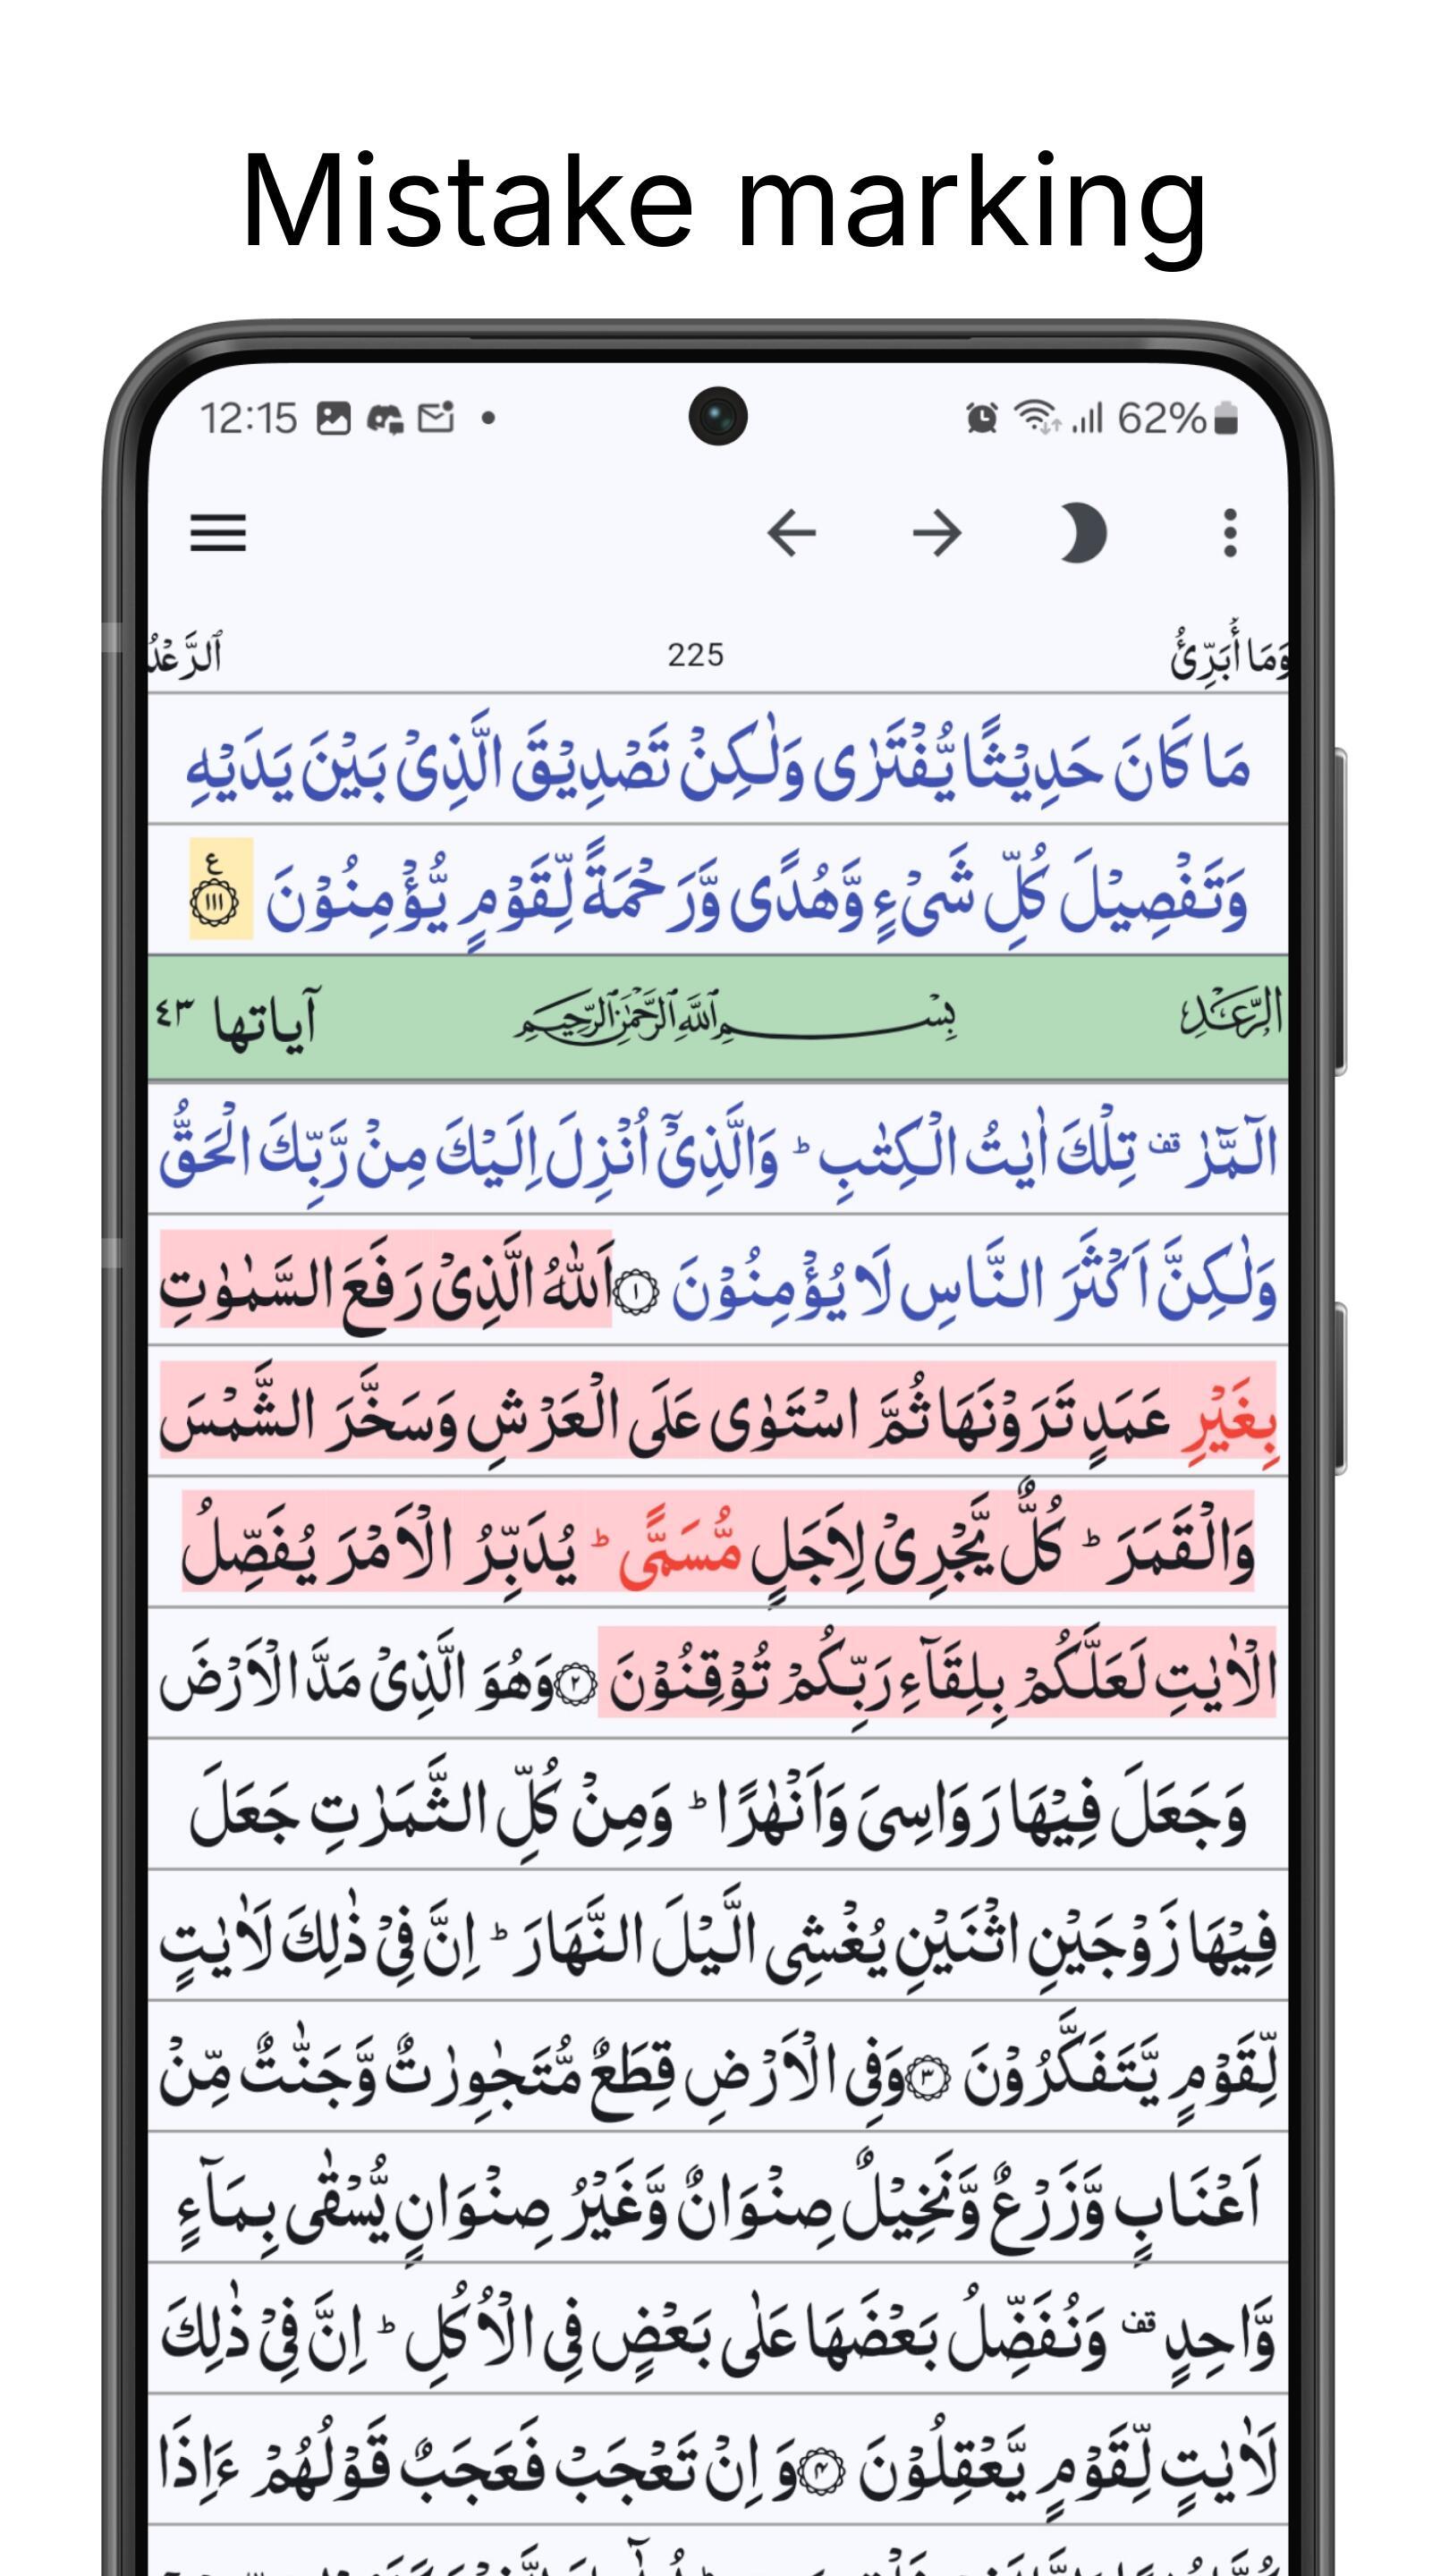 Mistake marking
12:15
62%
وَمَا أُبَرِّئُ
225
ٱلرَّعْدُ
مَا كَانَ حَدِيْثًا يُّفْتَرٰى وَلٰكِنْ تَصْدِيْقَ الَّذِىْ بَيْنَ يَدَيْهِ
وَتَفْصِيْلَ كُلِّ شَىْءٍ وَّهُدًى وَّرَحْمَةً لِّقَوْمٍ يُّؤْمِنُوْنَ ع ١١١
الرَّعْد بِسْمِ اللّٰهِ الرَّحْمٰنِ الرَّحِيْمِ آياتها ٤٣
الٓمّٓرٰ ۛقف تِلْكَ اٰيٰتُ الْكِتٰبِ ؕ وَالَّذِىْۤ اُنْزِلَ اِلَيْكَ مِنْ رَّبِّكَ الْحَقُّ
وَلٰكِنَّ اَكْثَرَ النَّاسِ لَا يُؤْمِنُوْنَ ١ اَللّٰهُ الَّذِىْ رَفَعَ السَّمٰوٰتِ
بِغَيْرِ عَمَدٍ تَرَوْنَهَا ثُمَّ اسْتَوٰى عَلَى الْعَرْشِ وَسَخَّرَ الشَّمْسَ
وَالْقَمَرَ ؕ كُلٌّ يَّجْرِىْ لِاَجَلٍ مُّسَمًّى ؕ يُدَبِّرُ الْاَمْرَ يُفَصِّلُ
الْاٰيٰتِ لَعَلَّكُمْ بِلِقَآءِ رَبِّكُمْ تُوْقِنُوْنَ ٢ وَهُوَ الَّذِىْ مَدَّ الْاَرْضَ
وَجَعَلَ فِيْهَا رَوَاسِىَ وَاَنْهٰرًا ؕ وَمِنْ كُلِّ الثَّمَرٰتِ جَعَلَ
فِيْهَا زَوْجَيْنِ اثْنَيْنِ يُغْشِى الَّيْلَ النَّهَارَ ؕ اِنَّ فِىْ ذٰلِكَ لَاٰيٰتٍ
لِّقَوْمٍ يَّتَفَكَّرُوْنَ ٣ وَفِى الْاَرْضِ قِطَعٌ مُّتَجٰوِرٰتٌ وَّجَنّٰتٌ مِّنْ
اَعْنَابٍ وَّزَرْعٌ وَّنَخِيْلٌ صِنْوَانٌ وَّغَيْرُ صِنْوَانٍ يُّسْقٰى بِمَآءٍ
وَّاحِدٍ قف وَنُفَضِّلُ بَعْضَهَا عَلٰى بَعْضٍ فِى الْاُكُلِ ؕ اِنَّ فِىْ ذٰلِكَ
لَاٰيٰتٍ لِّقَوْمٍ يَّعْقِلُوْنَ ۴ وَ اِنْ تَعْجَبْ فَعَجَبٌ قَوْلُهُمْ ءَاِذَا